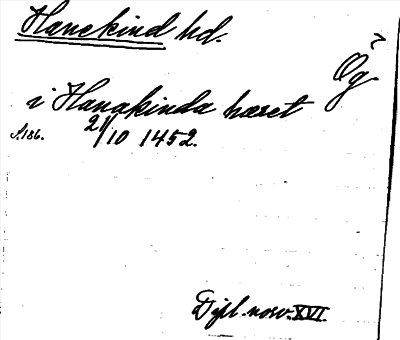 Hanekind hd.
Ög.
i Hanakinda hæret
A186. 21/10 1452.
Dipl. norv. XVI.